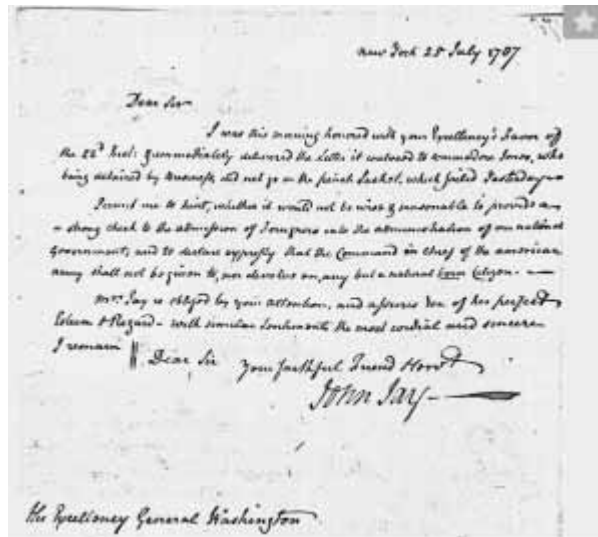 New York 25 July 1787
Dear Sir
I was this morning honored with your Excellency's Favor of
the 22d Inst: & immediately delivered the Letter it enclosed to commodore Jones, who
being detained by Business, did not go in the french Packet, which sailed Yesterday.
Permit me to hint, whether it would not be wise & seasonable to provide a
a strong check to the admission of Foreigners into the administration of our national
Government; and to declare expressly that the Command in chief of the american
army shall not be given to, nor devolve on, any but a natural born Citizen.
Mrs. Jay is obliged by your attention, and assures You of her perfect
Esteem & Regard - with similar Sentiments the most cordial and sincere
I remain Dear Sir Your faithful Friend & Servt
John Jay
His Excellency General Washington